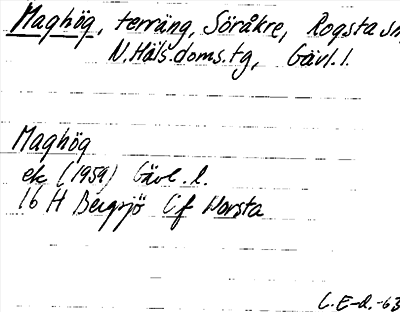 Maghög, terräng, Söråkre, Rogsta sn
N. Häls. doms. tg, Gävl. l.
Maghög
ek (1959) Gävl. l.
16 H Bergsjö Cf Norsta
C. E-d. -63